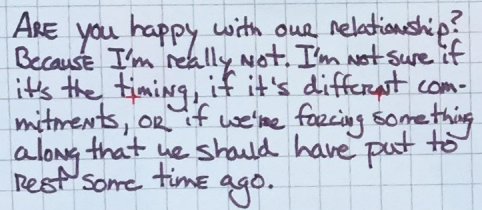 ARE you happy with our relationship?
Because I'm really Not. I'm Not sure if
it's the timing, if it's different com-
mitments, OR if we're forcing something
along that we should have put to
Rest some time ago.